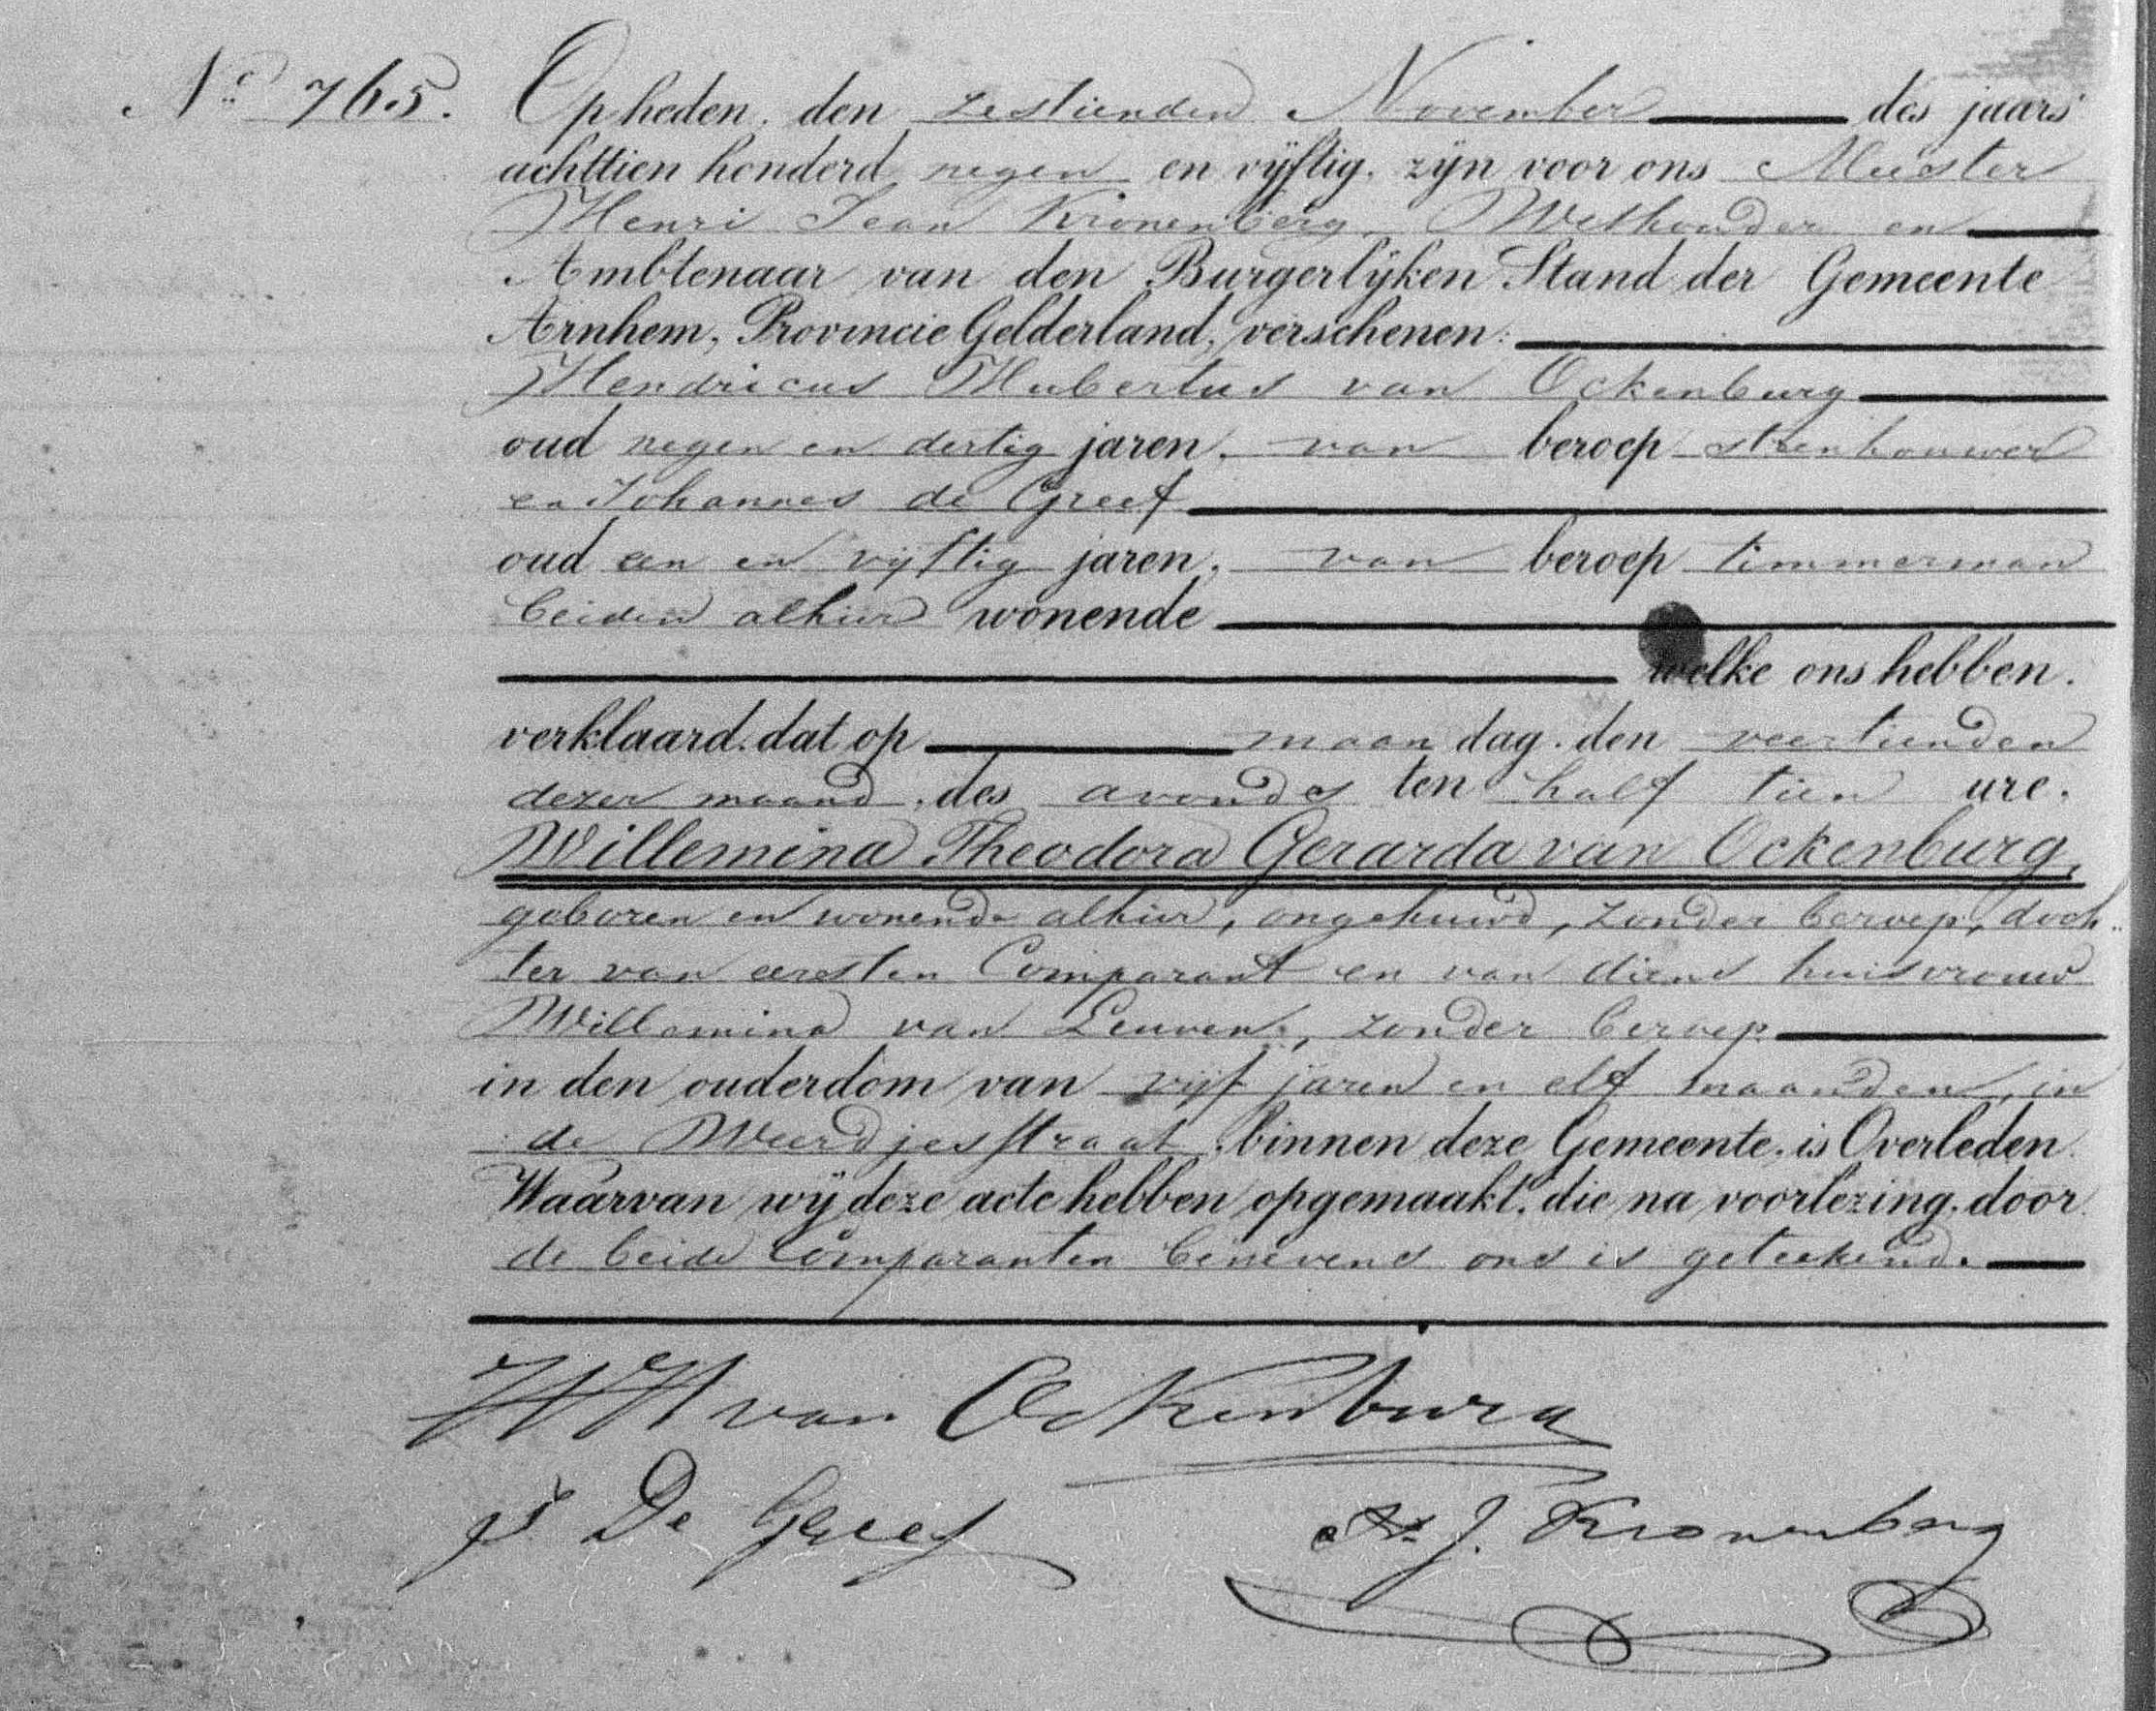 No 765. Op heden. den zestienden November des jaars
achttien honderd negen en vijftig. zijn voor ons Meester
Henri Jean Kronenberg, Wethouder en
Ambtenaar van den Burgerlijken Stand der Gemeente
Arnhem, Provincie Gelderland, verschenen:
Hendricus Hubertus van Ockenburg
oud negen en dertig jaren, van beroep steenhouwer
en Johannes de Greef
oud een en vijftig jaren, van beroep timmerman
beiden alhier wonende
welke ons hebben.
verklaard. dat op maandag. den veertienden
dezer maand, des avonds ten half tien ure.
Willemina Theodora Gerarda van Ockenburg,
geboren en wonende alhier, ongehuwd, zonder beroep, doch
ter van eersten Comparant en van diens huisvrouw
Willemina van Leuven, zonder beroep
in den ouderdom van vijf jaren en elf maanden, in
de Weerdjesstraat, binnen deze Gemeente. is Overleden.
Waarvan wij deze acte hebben opgemaakt. die na voorlezing. door
de beide Comparanten benevens ons is geteekend.
HH van Ockenburg
Js De Greef
H. J. Kronenberg